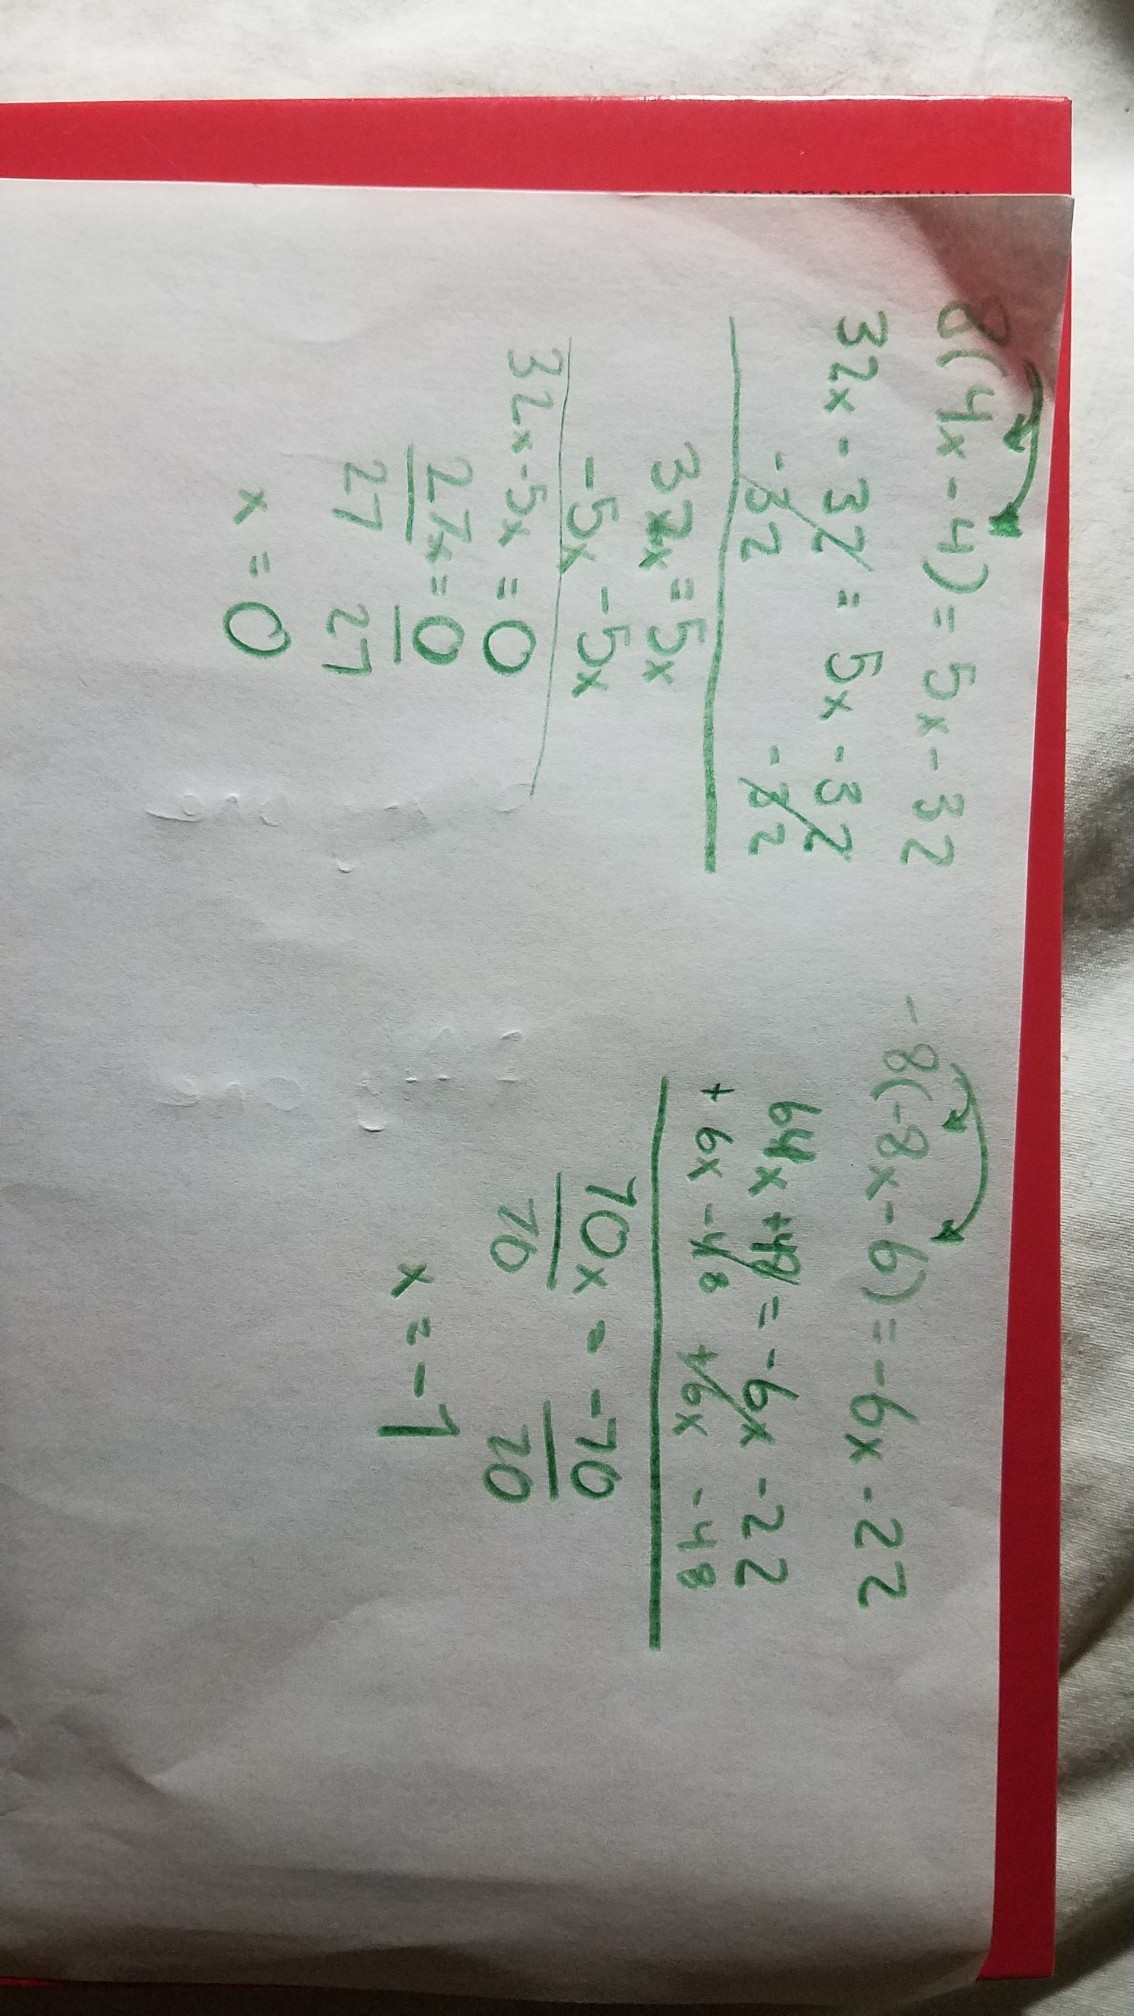 8(4x-4)=5x-32
32x-32=5x-32
-32 -32
32x=5x
-5x -5x
32x-5x=0
27x=0
27 27
x=0
-8(-8x-6)=-6x-22
64x+48=-6x-22
+6x-48 +6x -48
70x=-70
70 70
x=-1